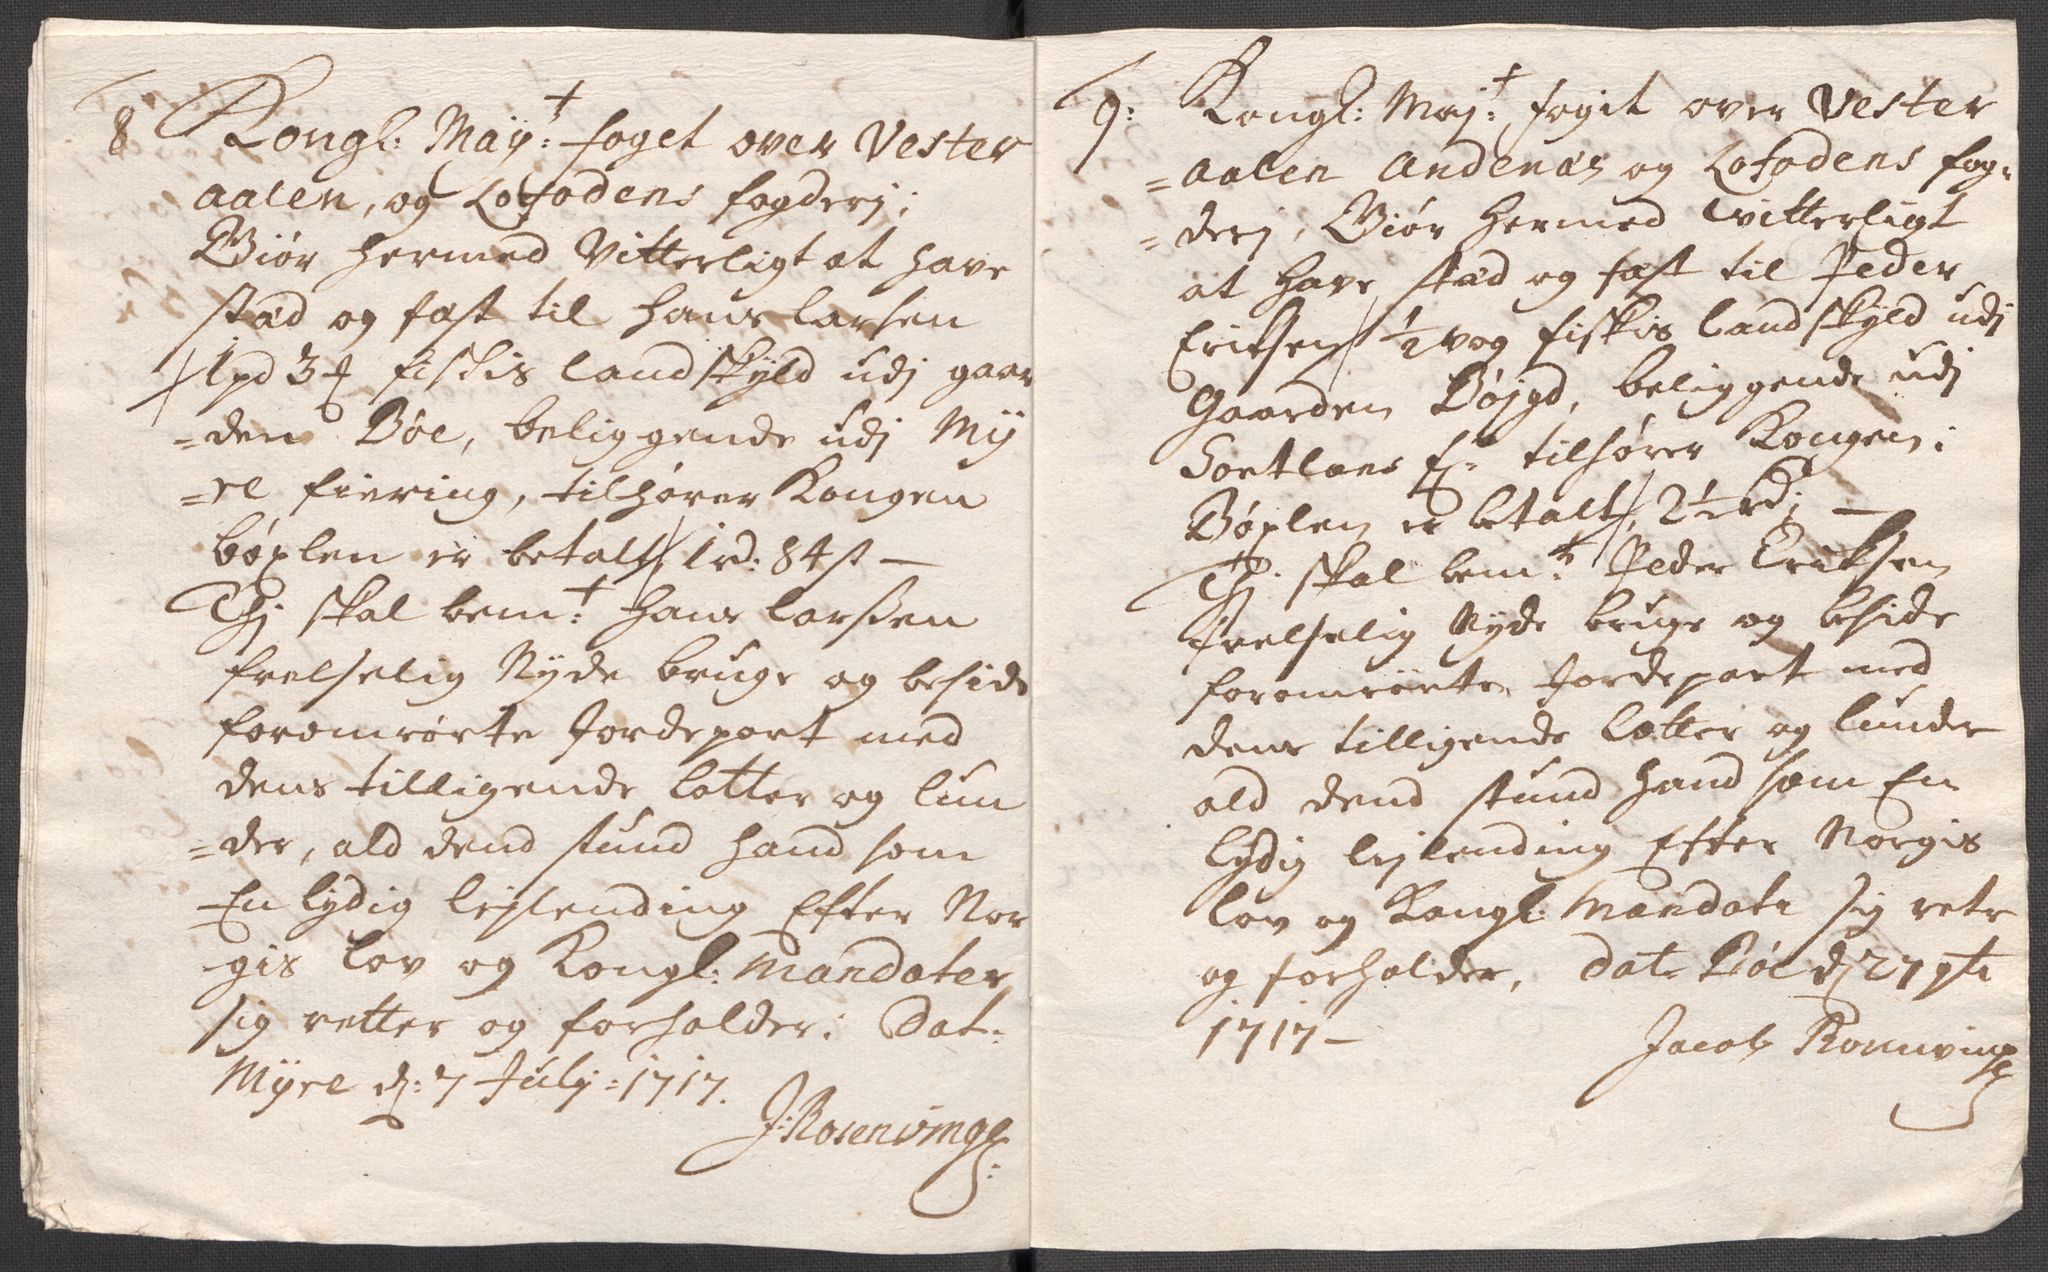 8 Kongl: Maÿt: foget over Vester
aalen, og Lofodens fogderj;
Giør hermed Vitterligt at have
stæd og fæst til Hans Larsen
1 pd 3 ℔ fiskis landskyld udj gaar
=den Bøe, beliggende udj Mÿ
=re fiering, tilhører Kongen
bøxlen er betalt 1 rd: 84 s —
Thj skal bemt: Hans Larssen
frelselig Nyde bruge og beside
foromrørte Jordepart med
dens tilligende lotter og lun
=der, ald dend stund hand som
En lydig lejlending Efter Nor
gis lov og Kongl: Mandater
sig retter og forholder: Dat:
Myre d: 7 July: 1717.
J: Rosenvinge:
9: Kongl: Majt: foget over Vester
=aalen Andenæs og Lofodens fog=
=derj, Giør hermed witterligt
at have stæd og fæst til Peder
Eriksen ½ vog fiskis landskyld udj
Gaarden Bøjgd, beliggende udj
Sortlans f: tilhører Kongen:
Bøxlen er betalt, 2½ rd; —
Thj skal bemt: Peder Eriksen
frelselig Nyde bruge og beside
foromrørte Jordepart med
dens tilligende lotter og lunder
ald dend stund hand som En
lydig lejlending Efter Norgis
lov og Kongl: Mandater sig retr
og forholder, Dat Bøe d 27 
1717 —
Jacob Rosenvinge